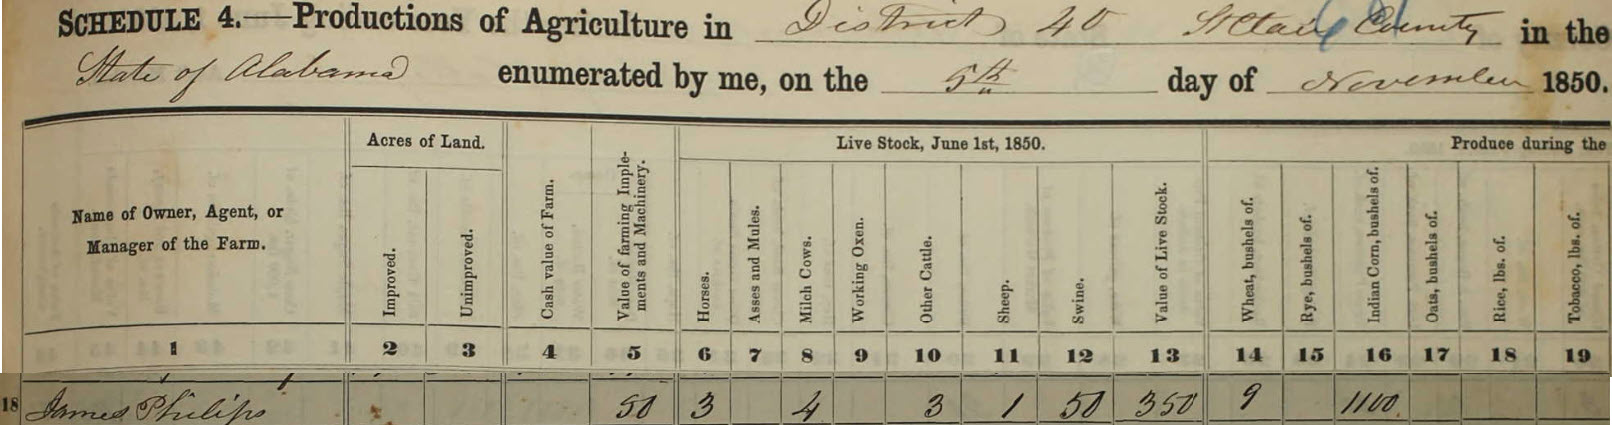 SCHEDULE 4.—Productions of Agriculture in District 40 St Clair County in the
State of Alabama enumerated by me, on the 5th day of November 1850.
Acres of Land.
Live Stock, June 1st, 1850.
Produce during the
Name of Owner, Agent, or
Manager of the Farm.
Improved.
Unimproved.
Cash value of Farm.
Value of farming Imple-
ments and Machinery.
Horses.
Asses and Mules.
Milch Cows.
Working Oxen.
Other Cattle.
Sheep.
Swine.
Value of Live Stock.
Wheat, bushels of.
Rye, bushels of.
Indian Corn, bushels of.
Oats, bushels of.
Rice, lbs. of.
Tobacco, lbs. of.
1 2 3 4 5 6 7 8 9 10 11 12 13 14 15 16 17 18 19
18 James Philips 50 3 4 3 1 50 350 9 1100